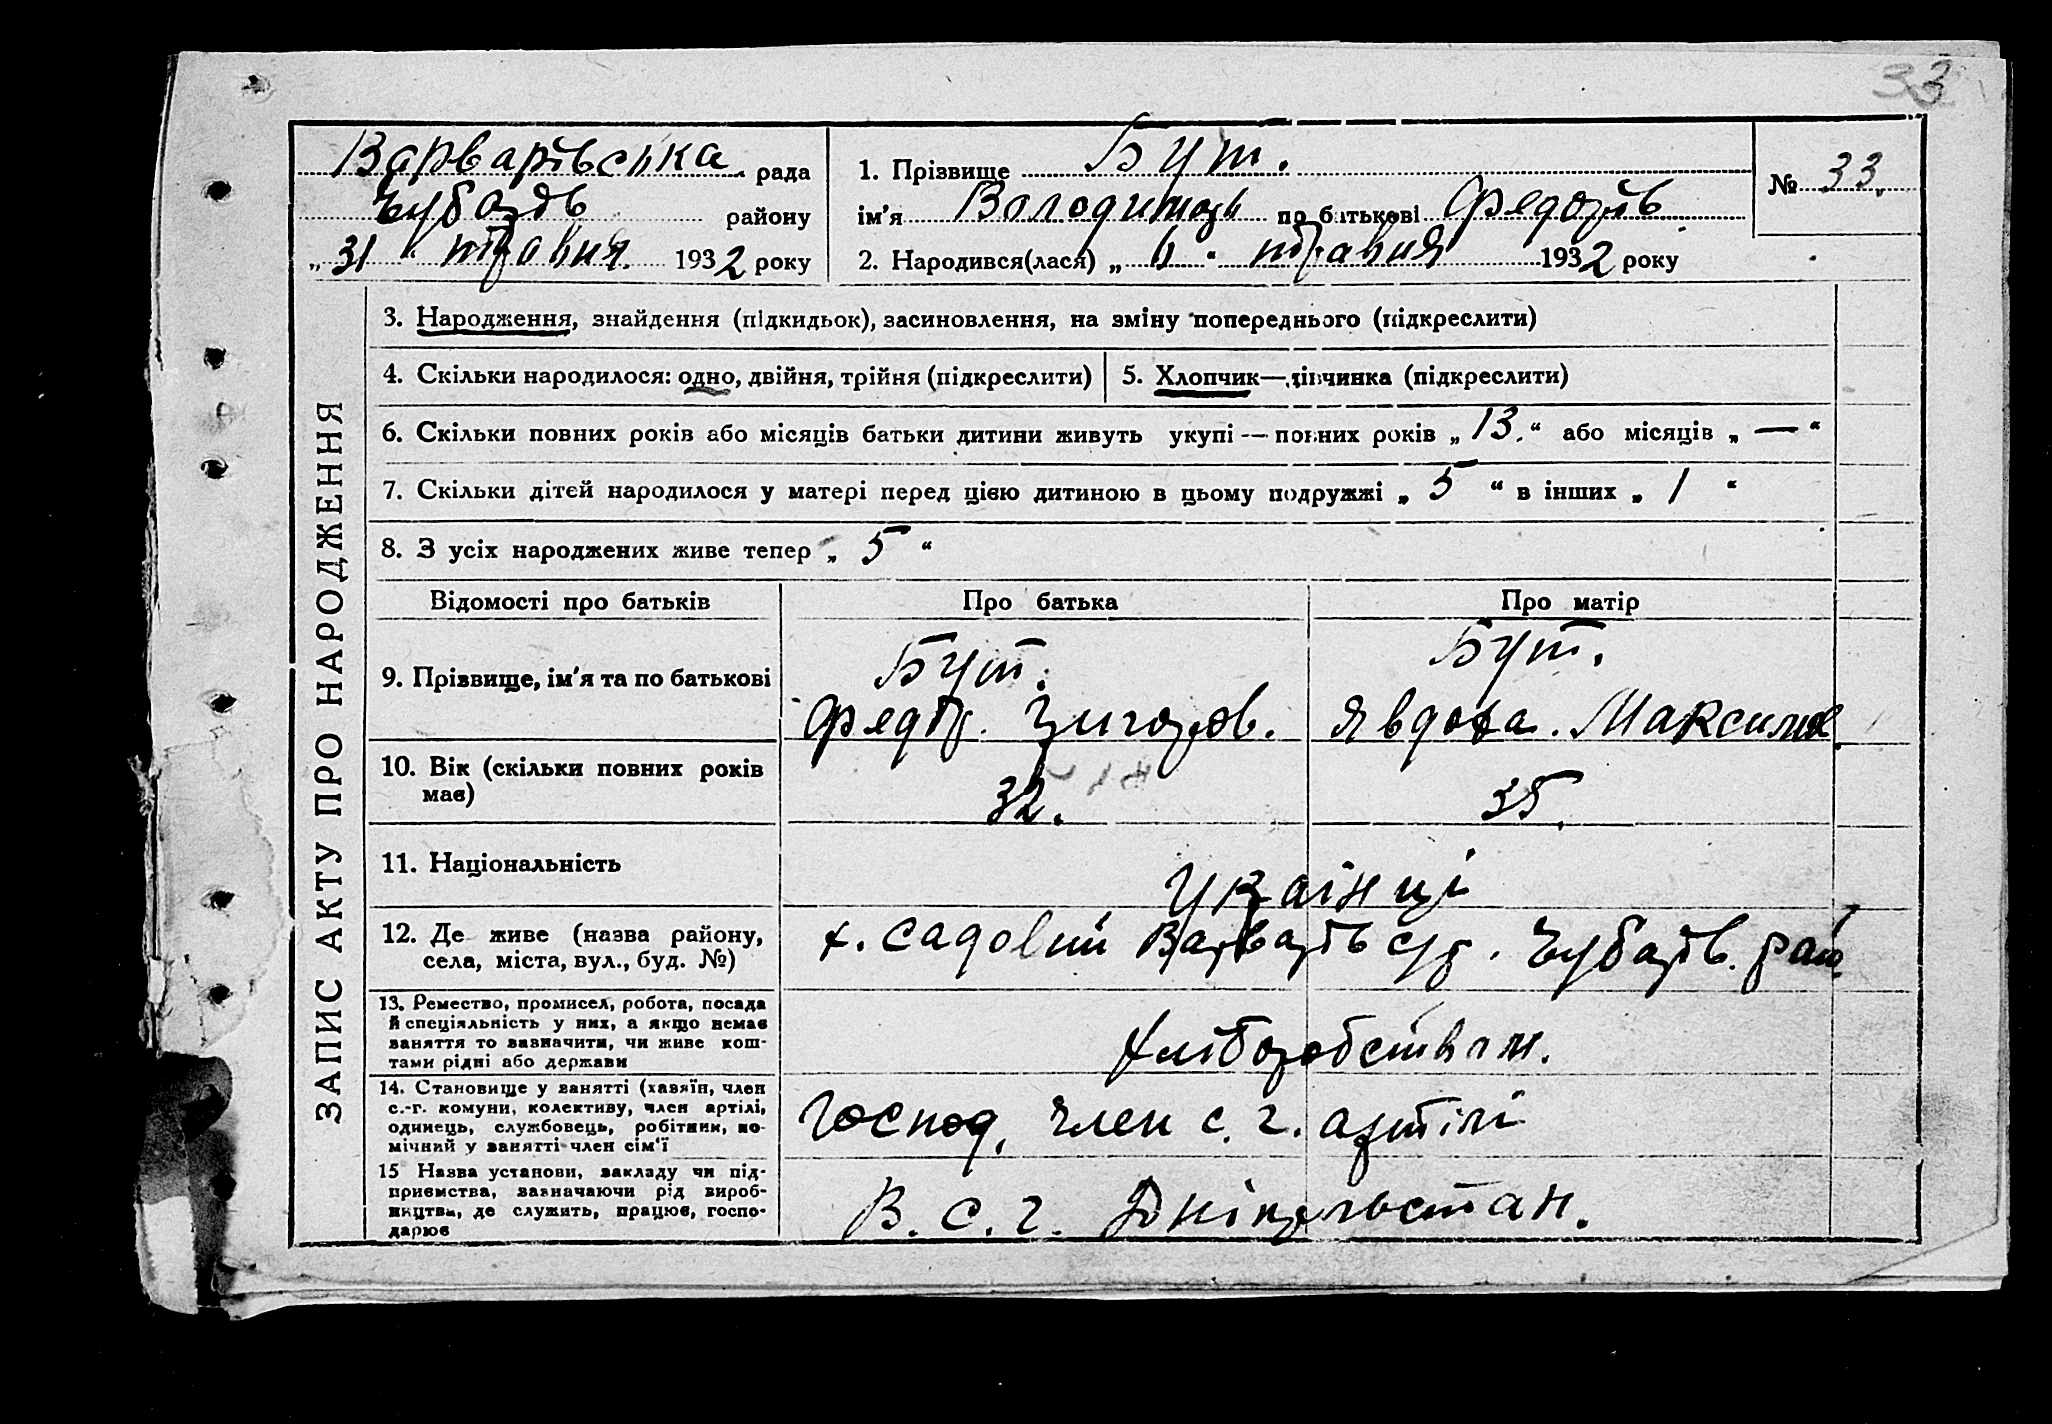 33
Варварівська рада
Чубарів району
„31" травня 1932 року
1. Прізвище Бут.
ім'я Володимир по батькові Федорів.
2. Народився(лася) „ " травня 1932 року
№ 33
ЗАПИС АКТУ ПРО НАРОДЖЕННЯ
3. Народження, знайдення (підкидьок), засиновлення, на зміну попереднього (підкреслити)
4. Скільки народилося: одно, двійня, трійня (підкреслити)
5. Хлопчик—дівчинка (підкреслити)
6. Скільки повних років або місяців батьки дитини живуть укупі — повних років „13." або місяців „—"
7. Скільки дітей народилося у матері перед цією дитиною в цьому подружжі „5" в інших „1"
8. З усіх народжених живе тепер „5"
Відомості про батьків Про батька Про матір
9. Прізвище, ім'я та по батькові
Бут.
Федір. Григоров.
Бут.
Явдоха. Максимов
10. Вік (скільки повних років
має)
32. 35.
11. Національність
Українці
12. Де живе (назва району,
села, міста, вул., буд. №)
х. Садовий Варварів с/р. Чубарів. рай.
13. Ремество, промисел, робота, посада
й спеціяльність у них, а якщо немає
заняття то зазначити, чи живе кош-
тами рідні або держави
Хліборобством.
14. Становище у занятті (хазяїн, член
с.-г. комуни, колективу, член артілі,
одинець, службовець, робітник, по-
мічний у занятті член сім'ї
Господ. член с. г. артілі
15 Назва установи, закладу чи під-
приємства, зазначаючи рід вироб-
ництва, де служить, працює, госпо-
дарює
В. С. Г.